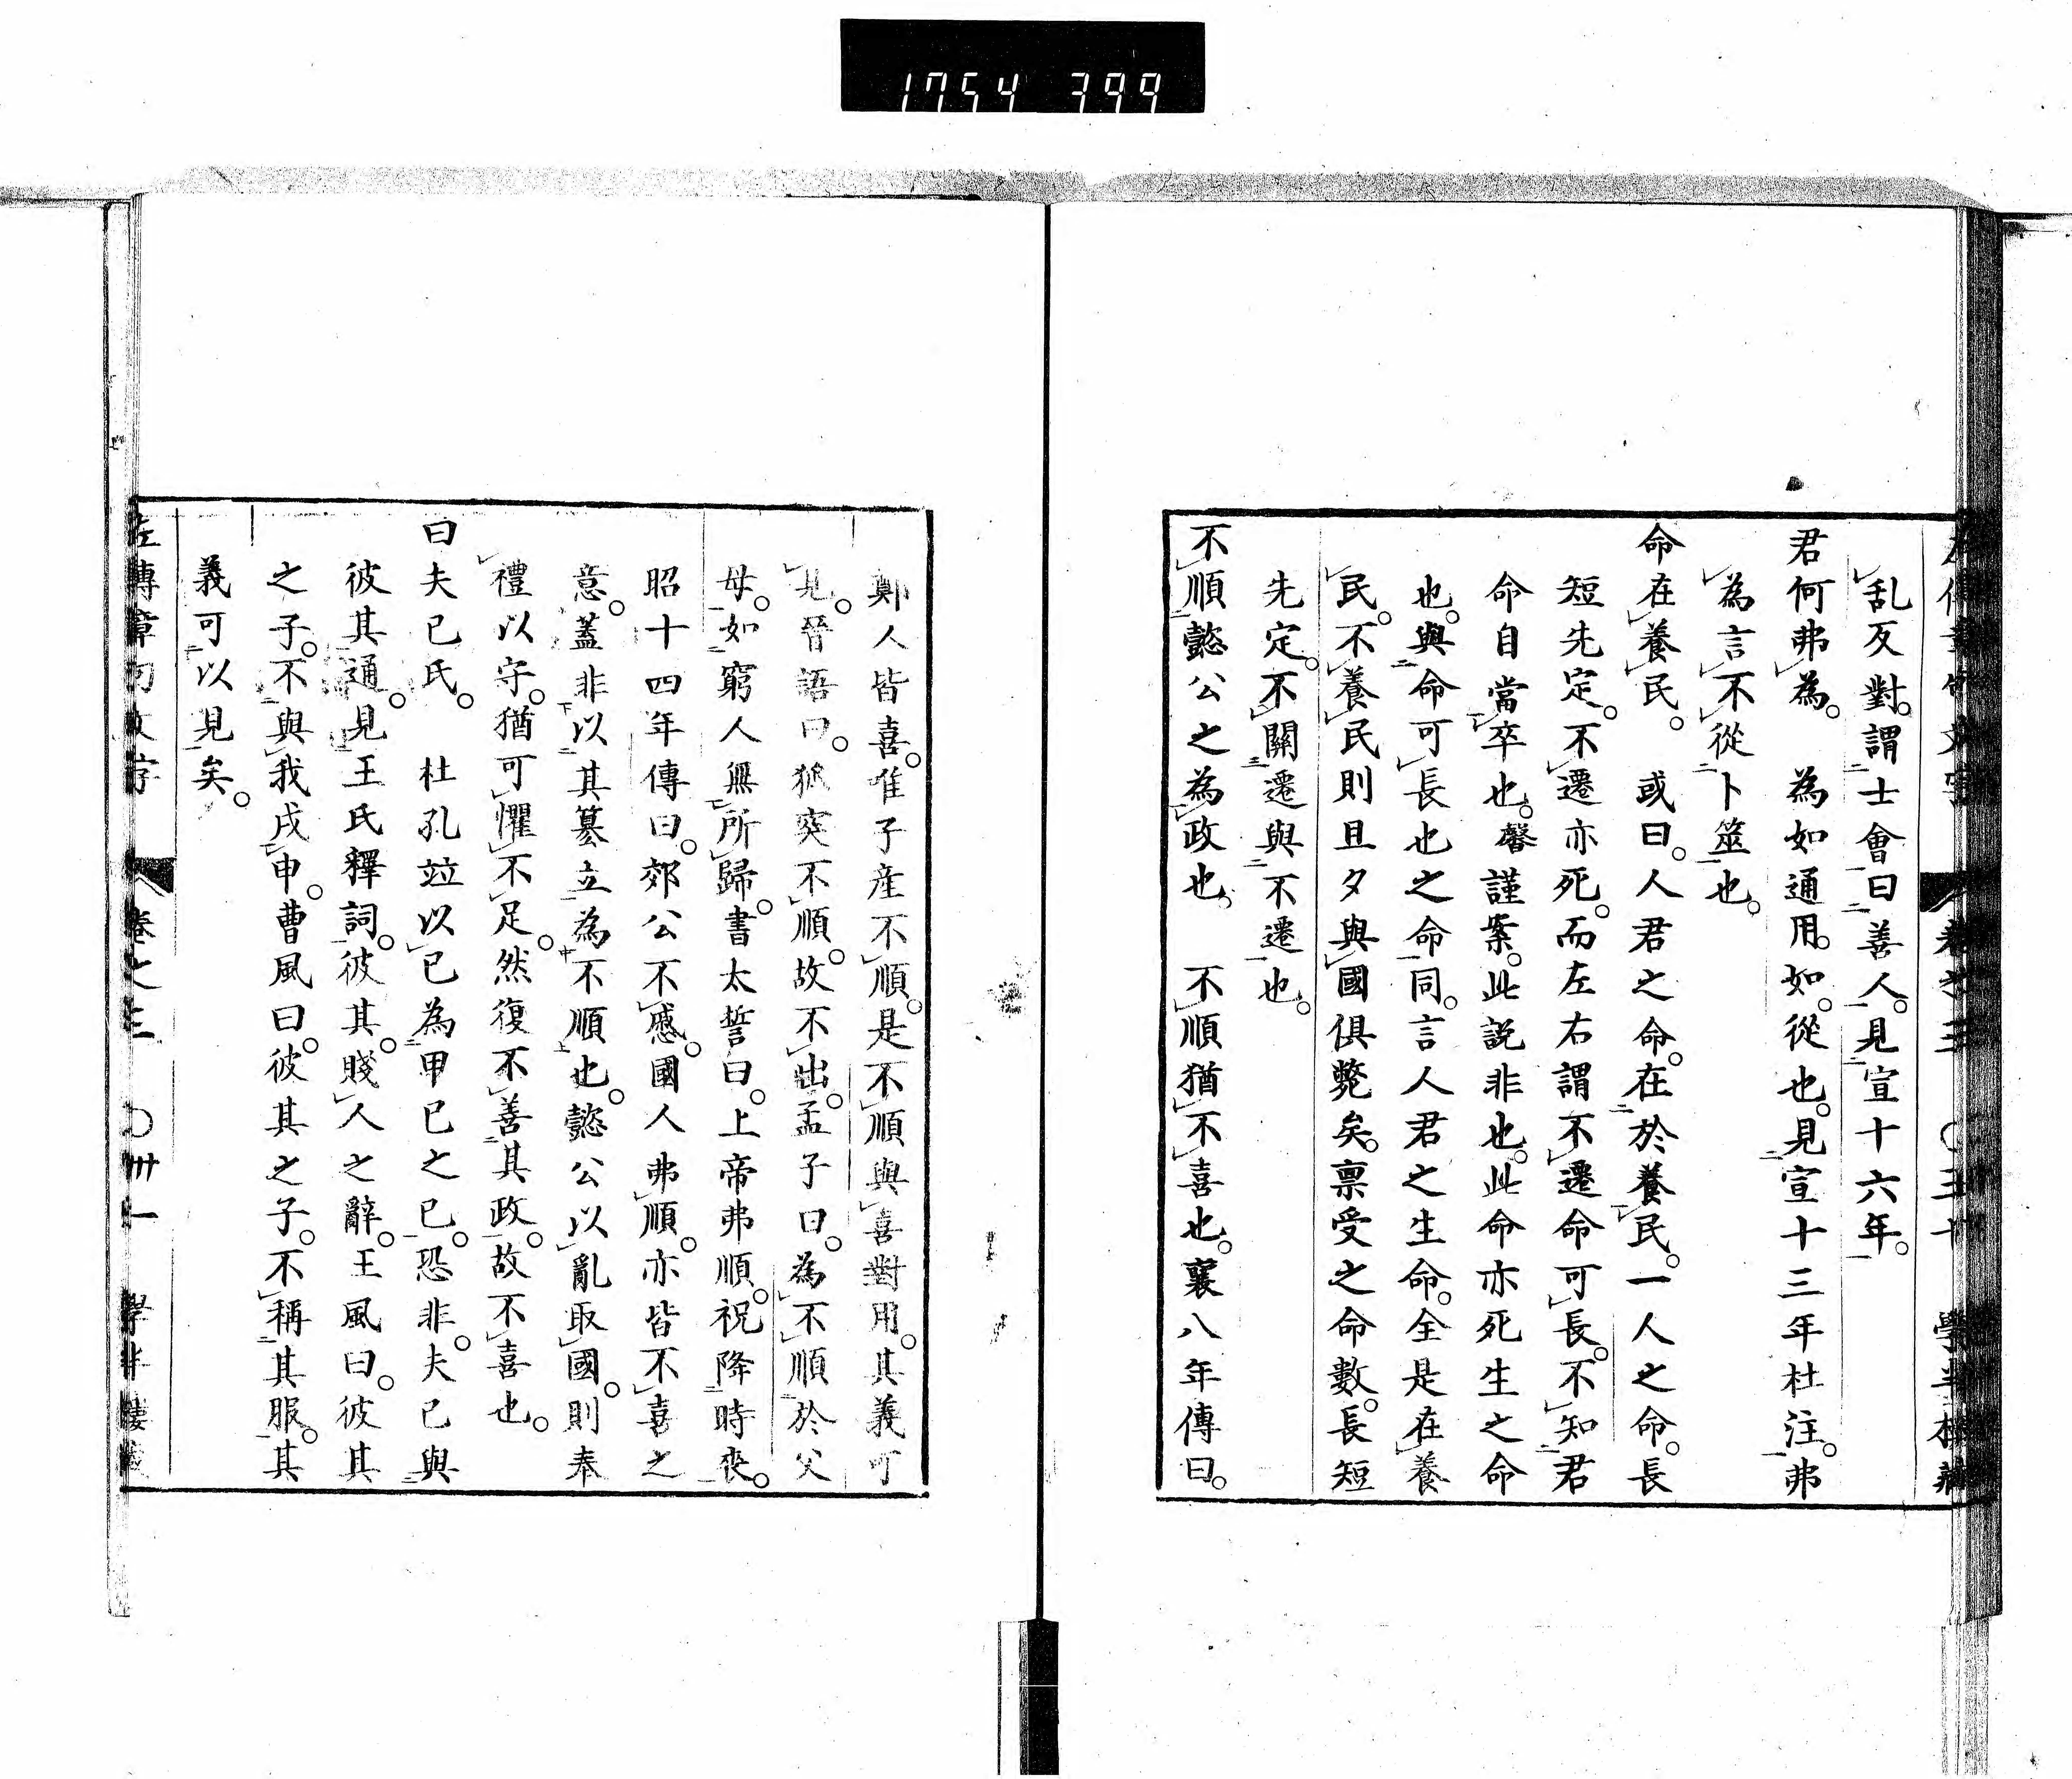 1754 399
乱反對。謂士會曰善人。見宣十六年。
君何弗為。 為如通用。如。從也。見宣十三年杜注。弗
為言不從卜筮也。
命在養民。 或曰。人君之命。在於養民。一人之命。長
短先定。不遷亦死。而左右謂不遷命可長。不知君
命自當卒也。馨謹案。此說非也。此命亦死生之命
也。與命可長也之命同。言人君之生命。全是在養
民。不養民則旦夕與國俱斃矣。禀受之命數。長短
先定。不關遷與不遷也。
不順懿公之為政也。 不順猶不喜也。襄八年傳曰。
鄭人皆喜。唯子產不順。是不順與喜對用。其義可
見。晉語曰。狐突不順。故不出。孟子曰。為不順於父
母。如窮人無所歸。書太誓曰。上帝弗順。祝降時喪。
昭十四年傳曰。郊公不慼。國人弗順。亦皆不喜之
意。蓋非以其篡立為不順也。懿公以亂取國。則奉
禮以守。猶可懼不足。然復不善其政。故不喜也。
曰夫已氏。 杜孔竝以已為甲已之已。恐非。夫已與
彼其通。見王氏釋詞。彼其。賤人之辭。王風曰。彼其
之子。不與我戍申。曹風曰。彼其之子。不稱其服。其
義可以見矣。
左傳章句文字 卷之三 〇卅一 學半樓藏